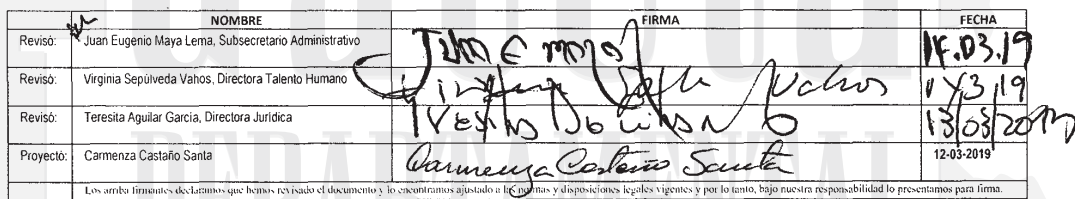 NOMBRE FIRMA FECHA
Revisó: Juan Eugenio Maya Lema, Subsecretario Administrativo 14.03.19
Revisó: Virginia Sepúlveda Vahos, Directora Talento Humano
Revisó: Teresita Aguilar García, Directora Jurídica 13/03/2019
Proyectó: Carmenza Castaño Santa Carmenza Castaño Santa 12-03-2019
Los arriba firmantes declaramos que hemos revisado el documento y lo encontramos ajustado a las normas y disposiciones legales vigentes y por lo tanto, bajo nuestra responsabilidad lo presentamos para firma.